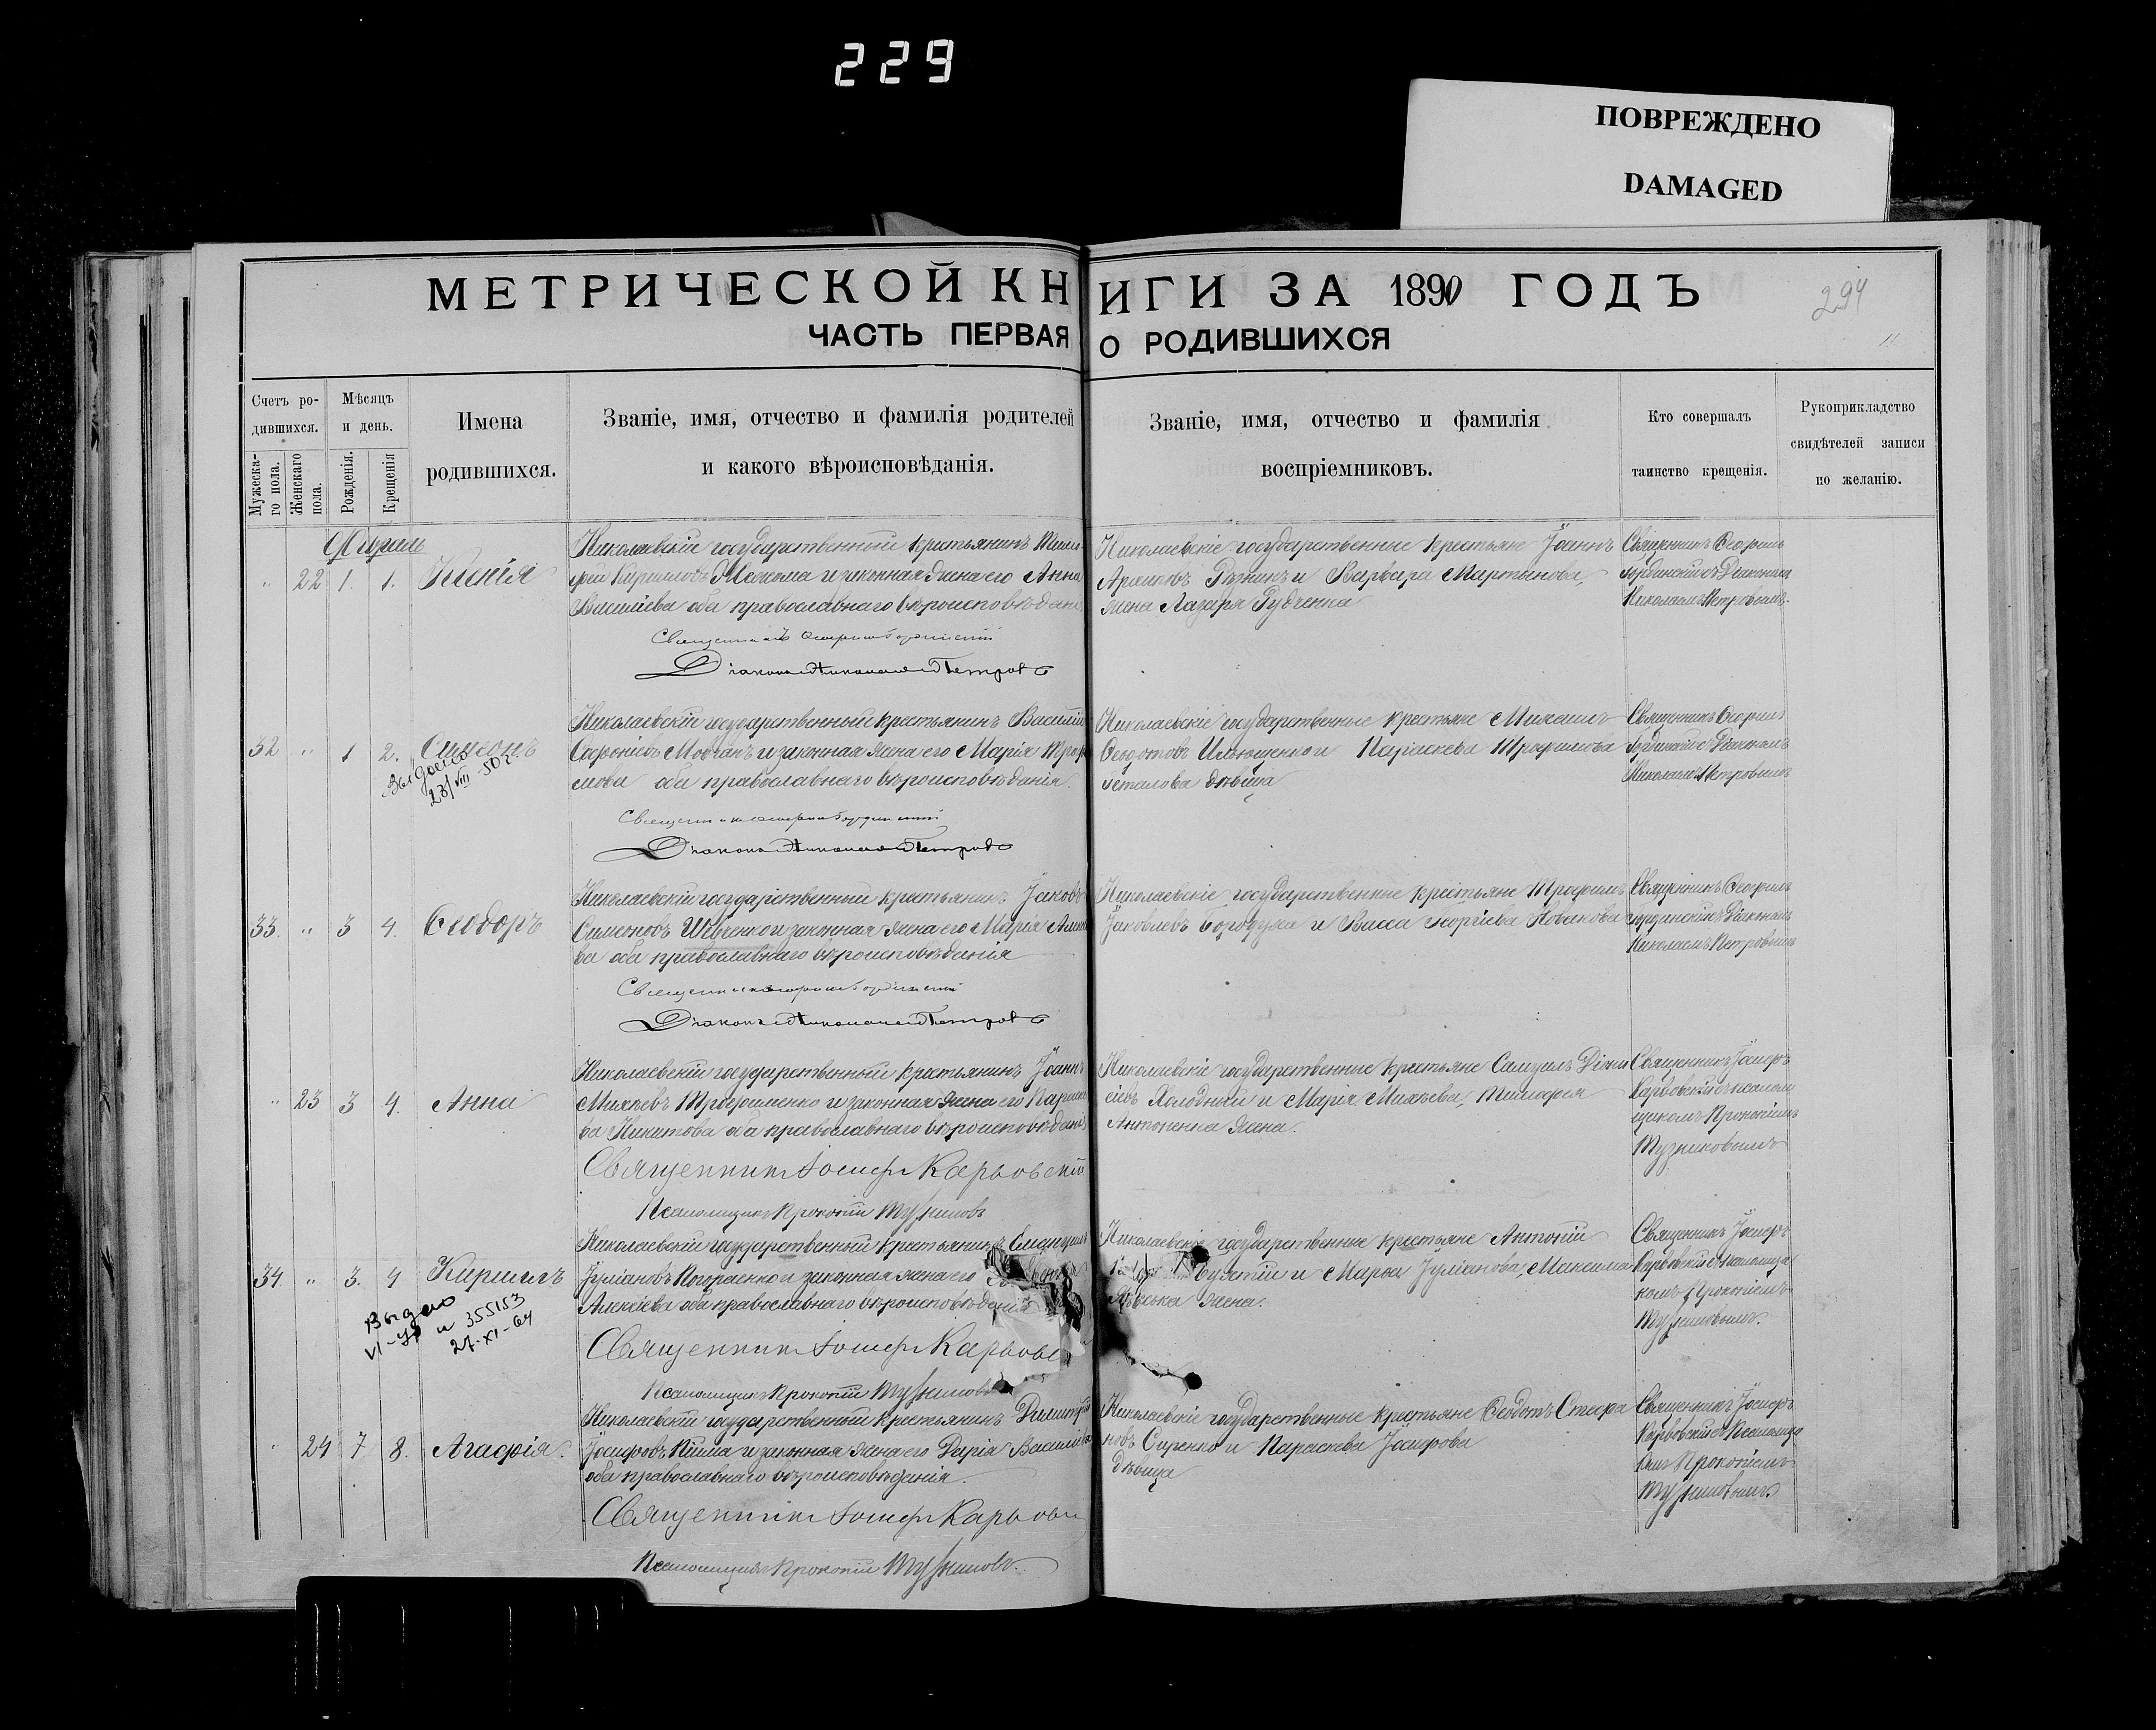 229
ПОВРЕЖДЕНО
DAMAGED
МЕТРИЧЕСКОЙ КНИГИ ЗА 1890 ГОДЪ
294
ЧАСТЬ ПЕРВАЯ О РОДИВШИХСЯ
Счетъ ро-
дившихся.
Мужеска-
го пола.
Женскаго
пола.
Мѣсяцъ
и день.
Рожденія.
Крещенія
Имена
родившихся.
Званіе, имя, отчество и фамилія родителей
и какого вѣроисповѣданія.
Званіе, имя, отчество и фамилія
воспріемниковъ.
Кто совершалъ
таинство крещенія.
Рукоприкладство
свидѣтелей записи
по желанію.
Апрель
" 22 1. 1.
Николаевскій государственный крестьянинъ
и законная жена его Анна
Василіева оба православнаго вѣроисповѣдані
Николаевскіе государственные крестьяне Іоаннъ
Архиповъ и Варвара Мартынова,
жена Лазаря Рудченка
Священникъ Ѳеофилъ
Діакономъ
Николаемъ Петровымъ.
Священникъ
Діаконъ Николай Петровъ
32 " 1 2. Симеонъ
Выдано
23/VIII 50 г.
Николаевскій государственный крестьянинъ Василій
Софоніевъ Мовчанъ и законная жена его Марія Троф
мова оба православнаго вѣроисповѣданія.
Николаевскіе государственные крестьяне Михаилъ
Ѳеодотовъ Ильющенко и Параскева Трофимова
дѣвица
Священникъ Ѳеофилъ
Діакономъ
Николаемъ Петровымъ
Священникъ
Діаконъ Николай Петровъ
33. " 3 4. Ѳеодоръ
Николаевскій государственный крестьянинъ Іаковъ
Симеоновъ Шевченко и законная жена его Марія
ва оба православнаго вѣроисповѣданія
Николаевскіе государственные крестьяне Трофимъ
Іаковлевъ Бородуха и Васса Георгіева Новакова
Священникъ Ѳеофилъ
Діакономъ
Николаемъ Петровымъ
Священникъ
Діаконъ Николай Петровъ
" 23 3 4. Анна
Николаевскій государственный крестьянинъ Іоаннъ
Михѣевъ Трофименко и законная жена его Параске
ва Никитова оба православнаго вѣроисповѣдані
Николаевскіе государственные крестьяне Самуилъ Діони
сіевъ Холодный и Марія Михѣева, Тимофея
Антоненка жена.
Священникъ Іосифъ
Карвовскій съ псалом
щикомъ Прокопіемъ
Тузниковымъ
Священникъ Іосифъ Карвовскій
Псаломщикъ Прокопій
34. " 3. 4 Кириллъ
Выдано
VI-УР и 355153
27-XI-64
Николаевскій государственный крестьянинъ
Іуліановъ Погорѣенко и законная жена его
Алексіева оба православнаго вѣроисповѣданія
Николаевскіе государственные крестьяне Антоній
и Марѳа Іуліанова, Максима
жена.
Священникъ Іосифъ
Карвовскій съ псаломщи
комъ Прокопіемъ
Священникъ Іосифъ Карвовс
Псаломщикъ Прокопій
" 24 7 8. Агафія.
Николаевскій государственный крестьянинъ Димитрій
Іосифовъ Кійма и законная жена его Дарія Василіева
оба православнаго вѣроисповѣданія.
Николаевскіе государственные крестьяне Ѳеодотъ Стефа
новъ Сиренко и Параскева Іосифова
дѣвица
Священникъ Іосифъ
Карвовскій съ Псаломщи
комъ Прокопіемъ
Священникъ Іосифъ Карвовс
Псаломщикъ Прокопій